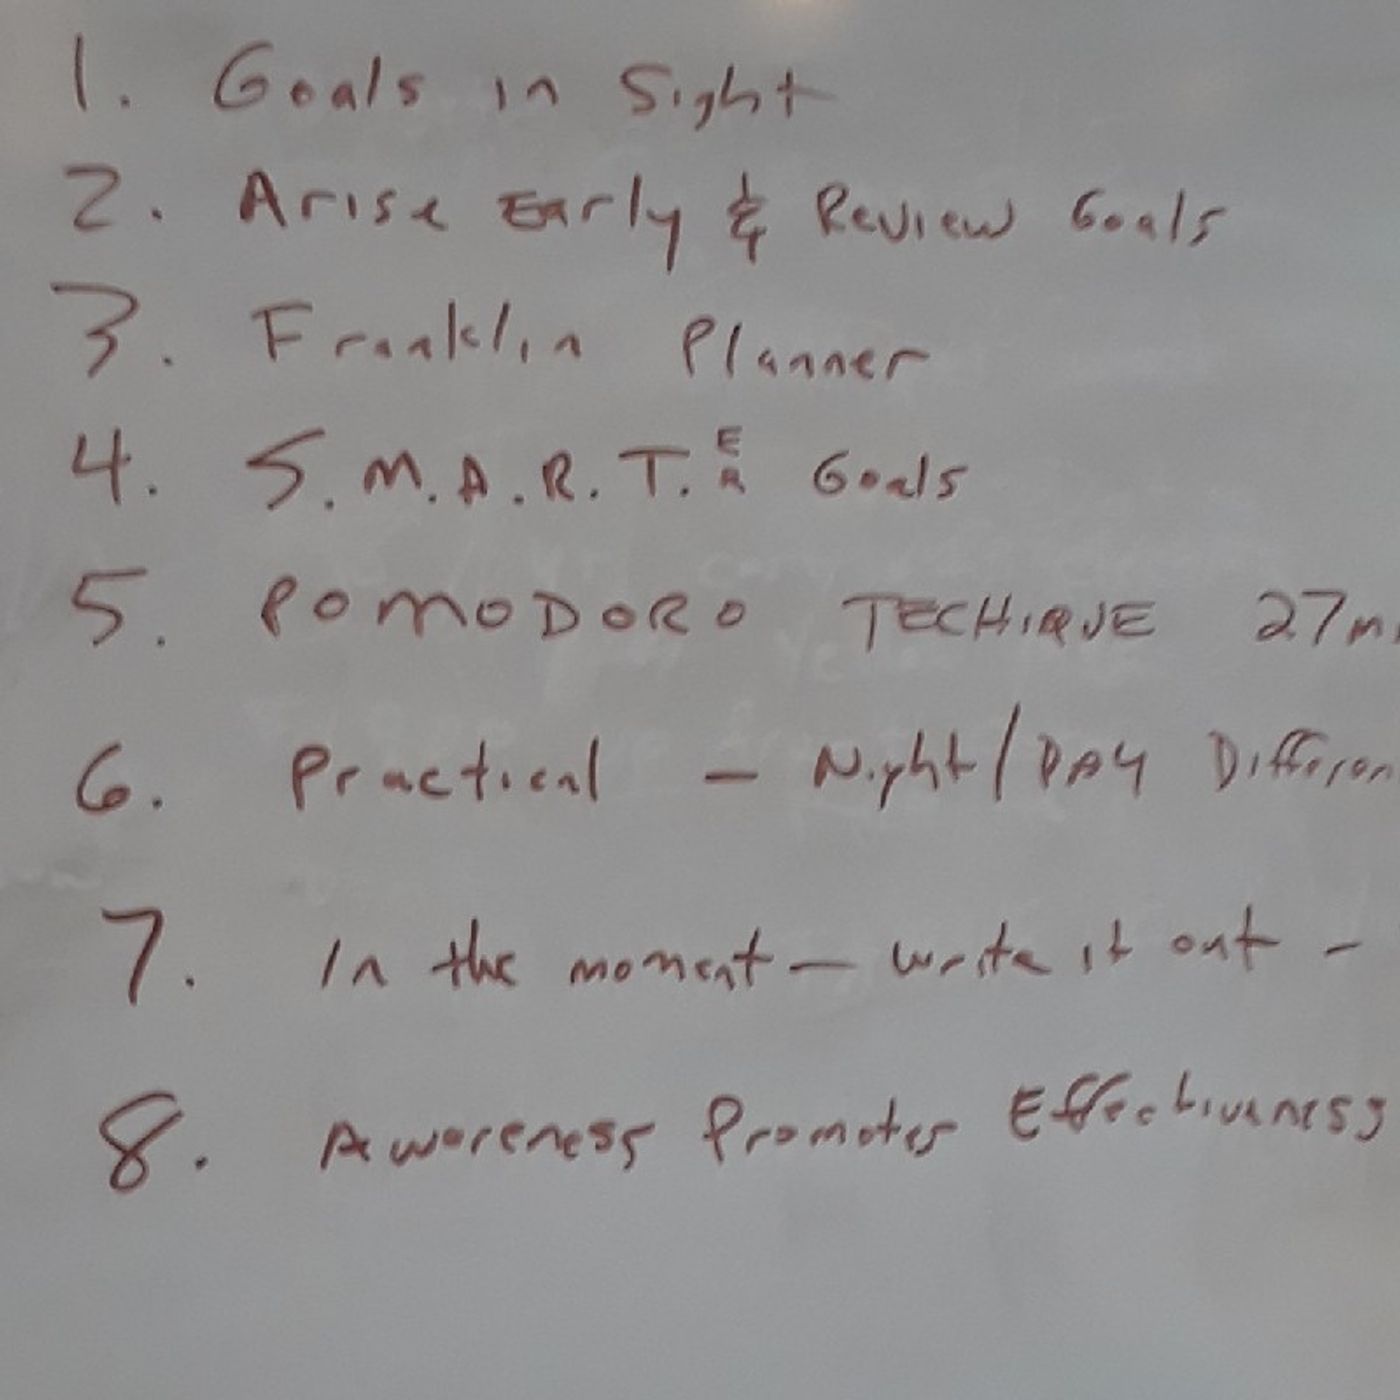 1. Goals in Sight
2. Arise Early & Review Goals
3. Franklin Planner
4. S.M.A.R.T.ER Goals
5. POMODORO TECHIQUE 27m
6. Practical - Night/DAY Differen
7. In the moment - write it out -
8. Awareness Promotes Effectiveness